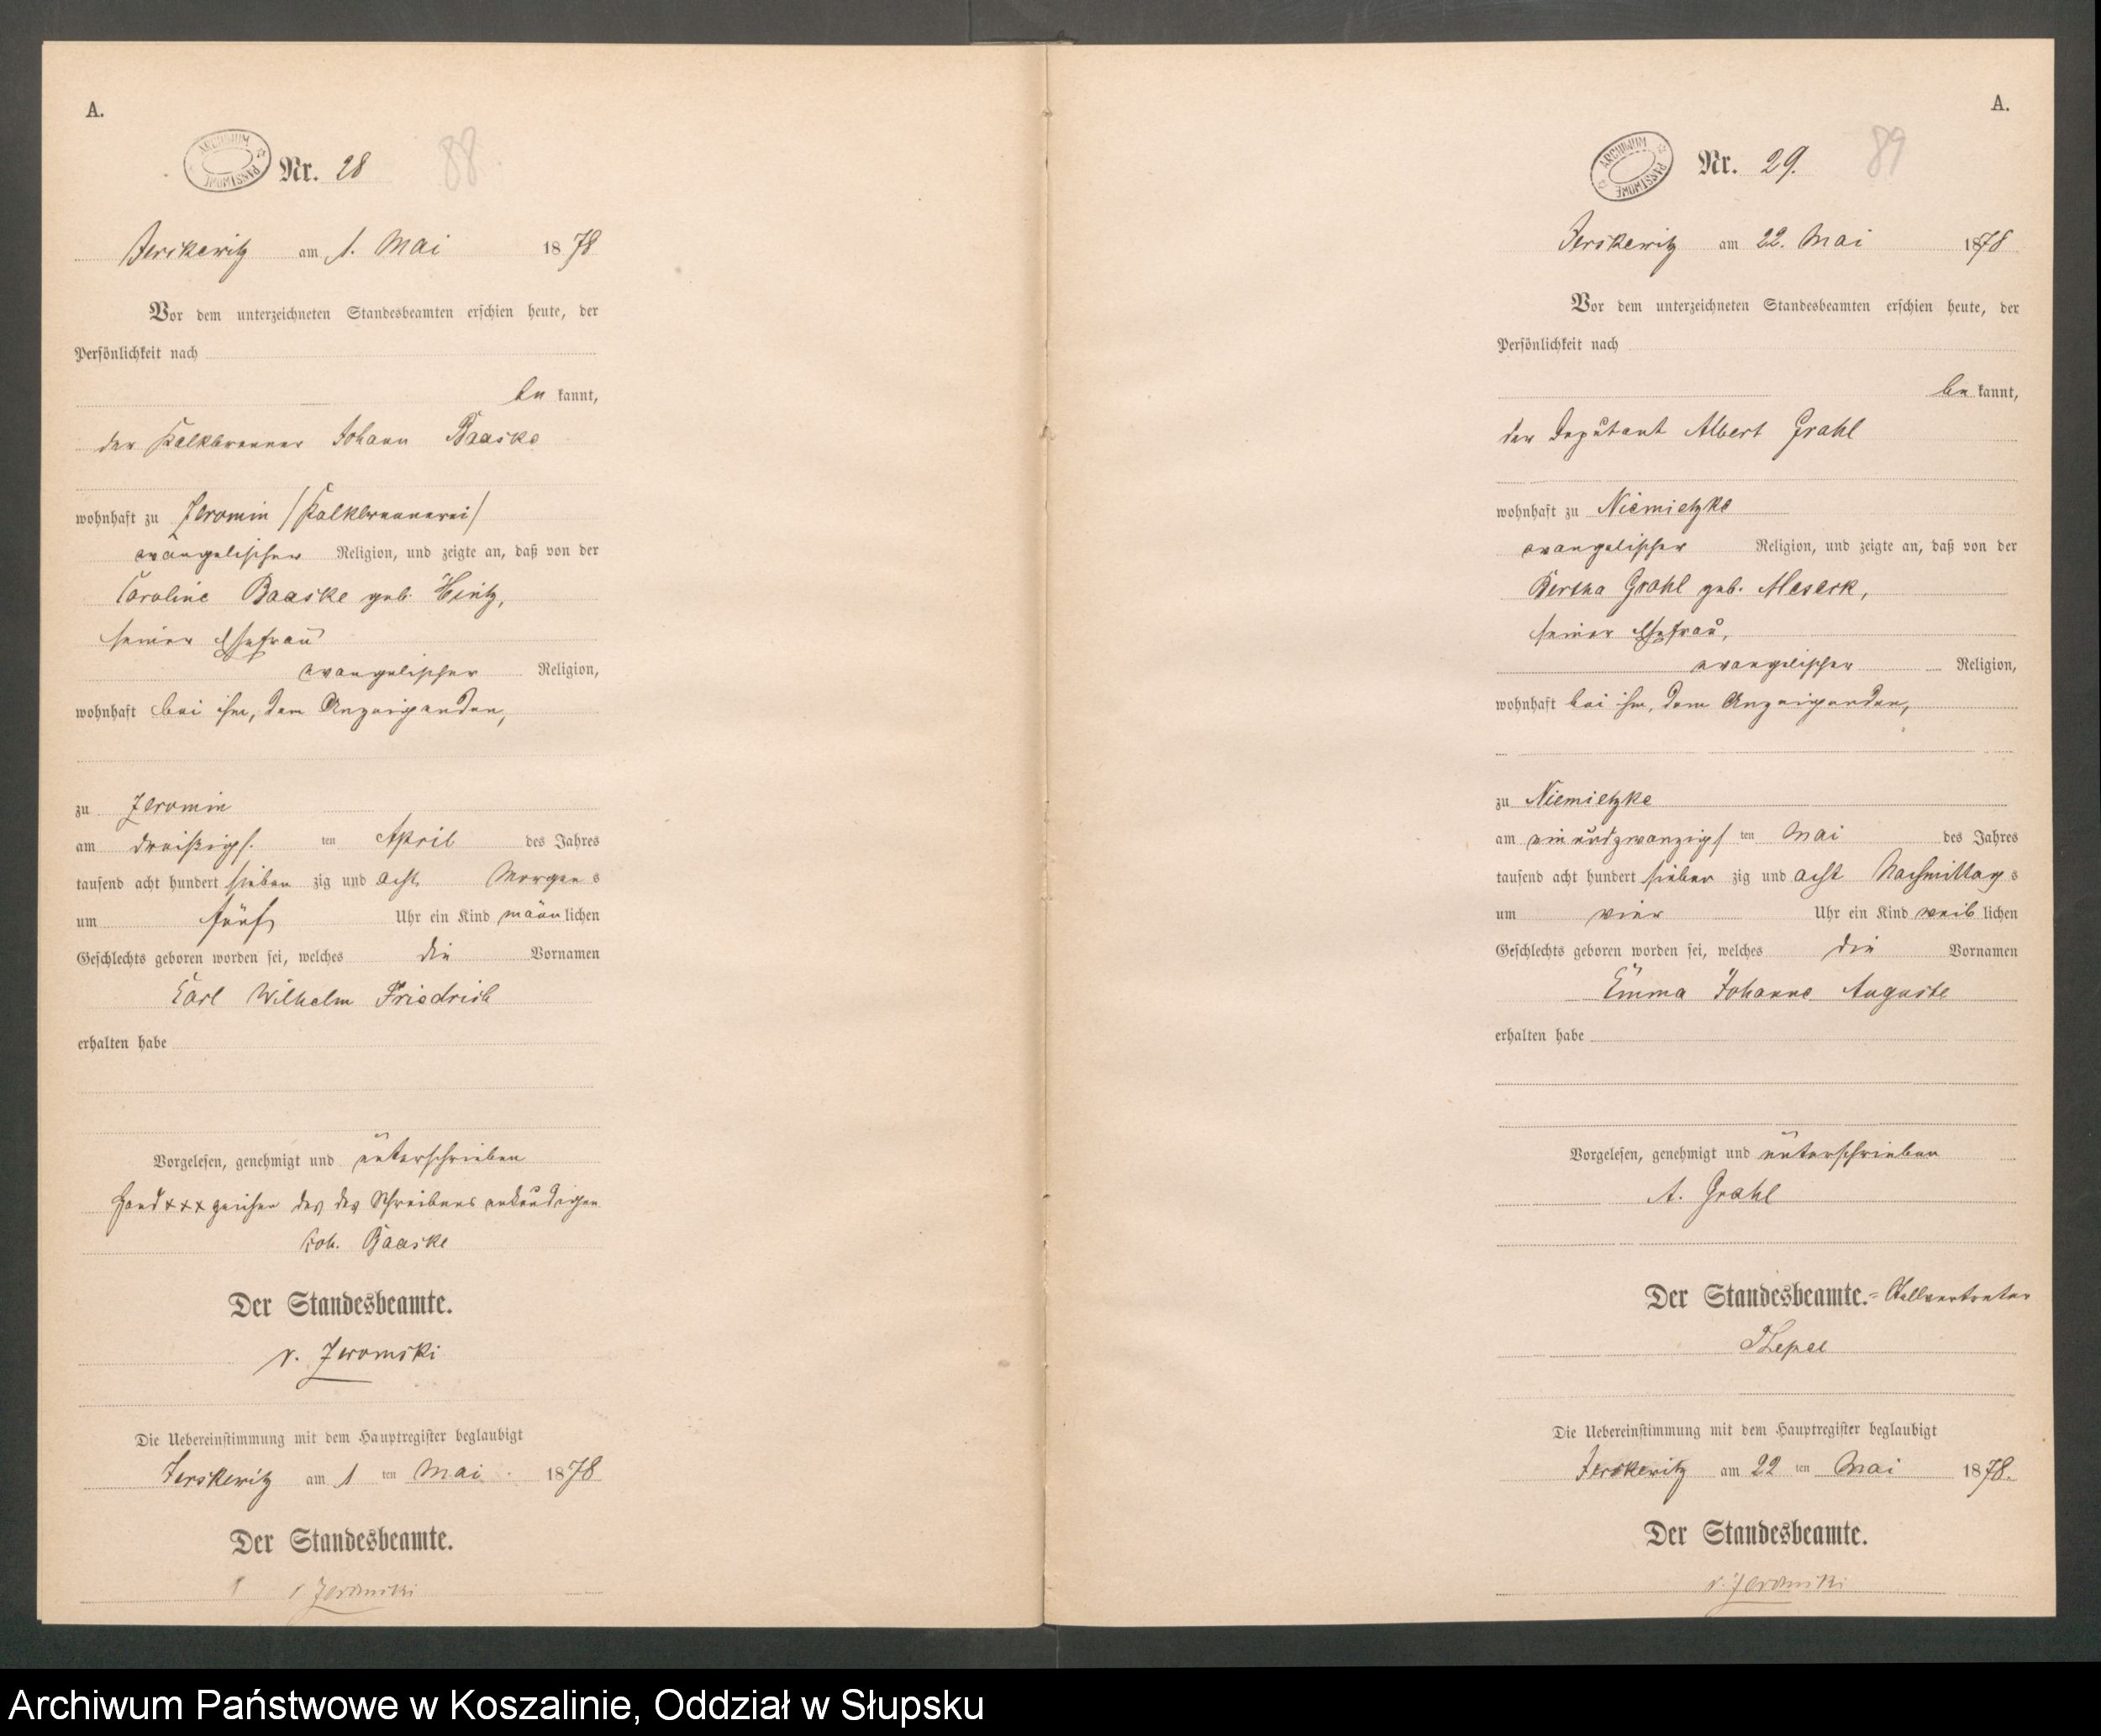 A.
ARCHIWUM PAŃSTWOWE
Nr. 28
88
Jerskewitz am 1. Mai 1878
Vor dem unterzeichneten Standesbeamten erschien heute, der
Persönlichkeit nach
be kannt,
der Kalkbrenner Johann Baaske
wohnhaft zu Jeromin /Kalkbrennerei/
evangelischer Religion, und zeigte an, daß von der
Caroline Baaske geb. Hintz,
seiner Ehefrau
evangelischer Religion,
wohnhaft bei ihm, dem Anzeigenden,
zu Jeromin
am dreißigs. ten April des Jahres
tausend acht hundert sieben zig und acht Morgen s
um fünf Uhr ein Kind männ lichen
Geschlechts geboren worden sei, welches die Vornamen
Carl Wilhelm Friedrich
erhalten habe
Vorgelesen, genehmigt und unterschrieben
Hand xxx zeichen des des Schreibens unkundigen
Joh. Baaske
Der Standesbeamte.
v. Jeromski
Die Uebereinstimmung mit dem Hauptregister beglaubigt
Jerskewitz am 1 ten Mai 1878
Der Standesbeamte.
v Jeromski
A.
ARCHIWUM PAŃSTWOWE
Nr. 29.
89
Jerskewitz am 22. Mai 1878
Vor dem unterzeichneten Standesbeamten erschien heute, der
Persönlichkeit nach
be kannt,
der Deputant Albert Grahl
wohnhaft zu Niemietzke
evangelischer Religion, und zeigte an, daß von der
Bertha Grahl geb. Meserk,
seiner Ehefrau,
evangelischer Religion,
wohnhaft bei ihm, dem Anzeigenden,
zu Niemietzke
am einundzwanzigs ten Mai des Jahres
tausend acht hundert sieben zig und acht Nachmittag s
um vier Uhr ein Kind weib lichen
Geschlechts geboren worden sei, welches die Vornamen
Emma Johanne Auguste
erhalten habe
Vorgelesen, genehmigt und unterschrieben
A. Grahl
Der Standesbeamte.= Stellvertreter
Die Uebereinstimmung mit dem Hauptregister beglaubigt
Jerskewitz am 22 ten Mai 1878.
Der Standesbeamte.
v. Jeromski
Archiwum Państwowe w Koszalinie, Oddział w Słupsku